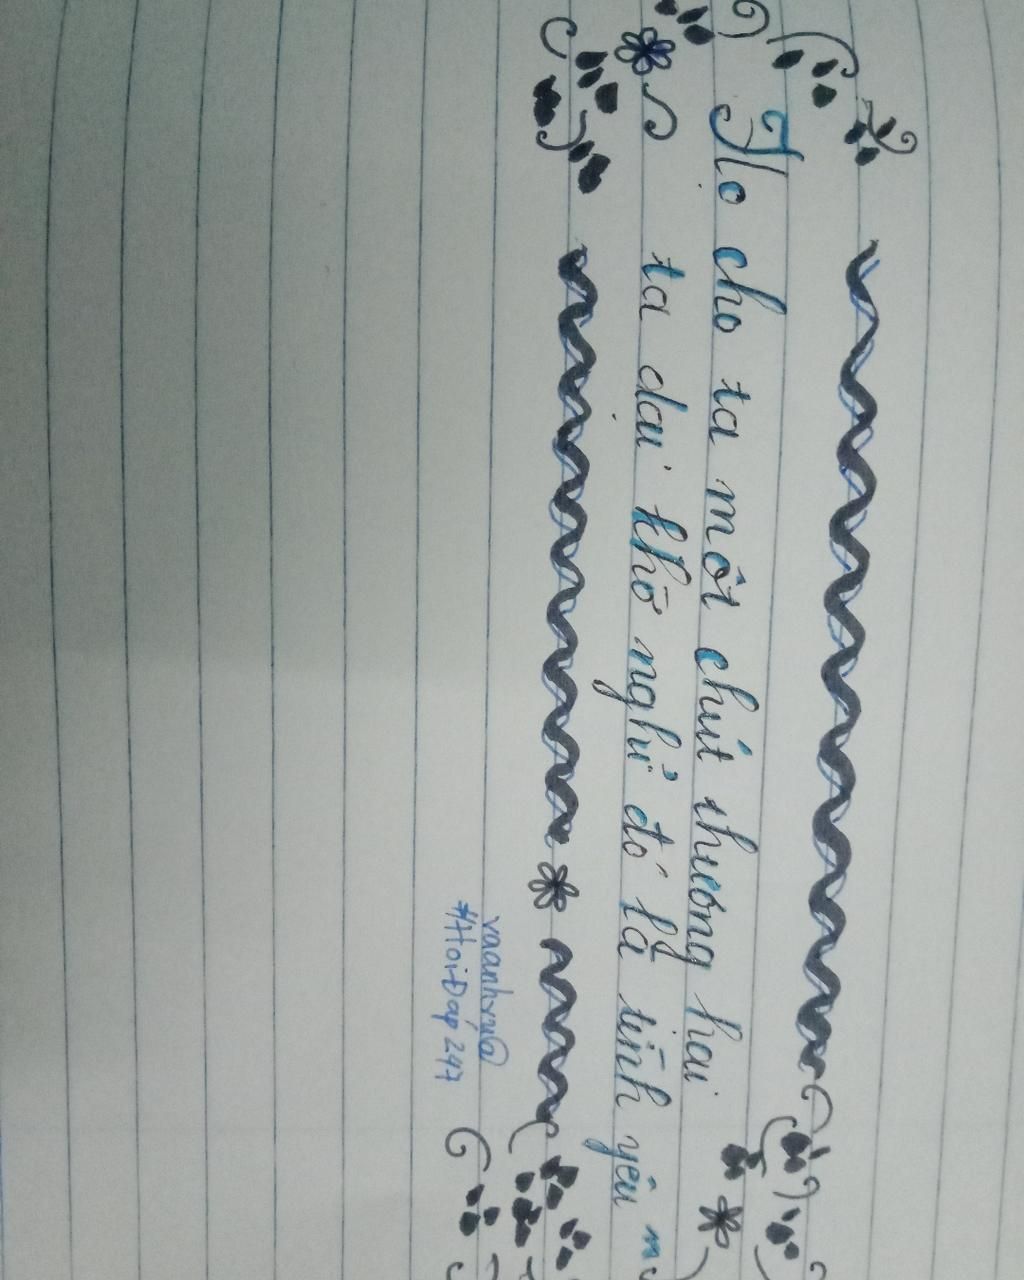 Họ cho ta một chút thương hại
ta dại khờ nghĩ đó là tình yêu
vaanhryu@
#HoiĐap247